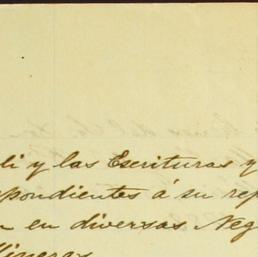 li y las Escrituras y
pondientes á su rep
n en diversas Neg
lineras